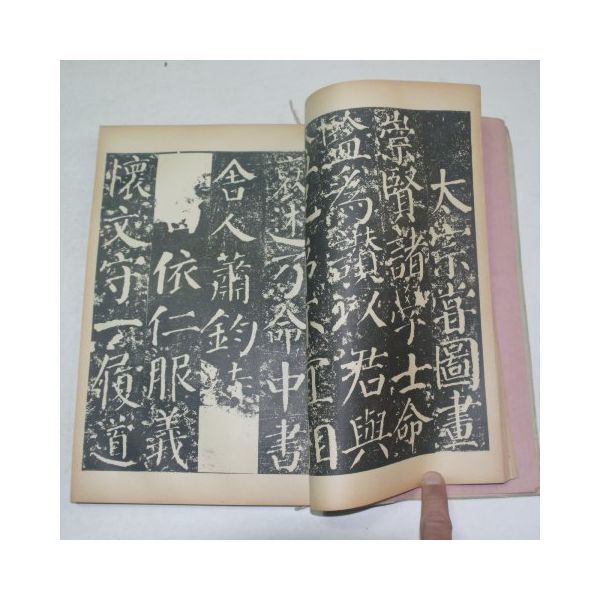 大宗甞圖畫
崇賢諸學士命
監為讃以君與
褒述乃命中書
舍人蕭鈞特
依仁服義
懷文守一履道